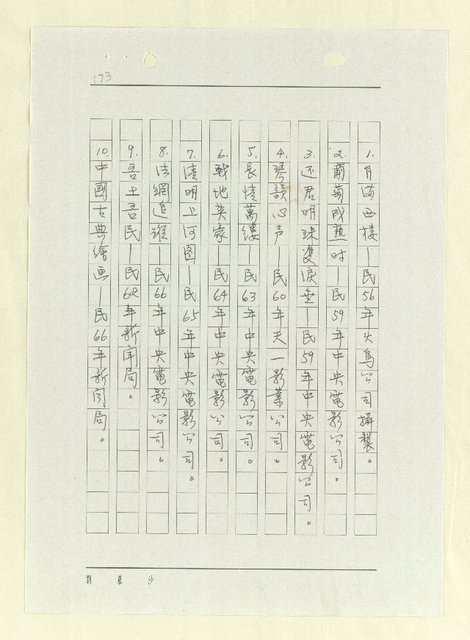 173
1.月滿西樓—民56年火鳥公司攝製。
2.葡萄成熟時—民59年中央電影公司。
3.还君明珠雙淚垂—民59年中央電影公司。
4.琴韻心声—民60年天一影業公司。
5.長情萬縷—民63年中央電影公司。
6.戰地英豪—民64年中央電影公司。
7.清明上河图 民65年中央電影公司。
8.法網追蹤—民66年中央電影公司。
9.吾土吾民—民62年新闻局。
10.中國古典繪画—民66年新闻局。